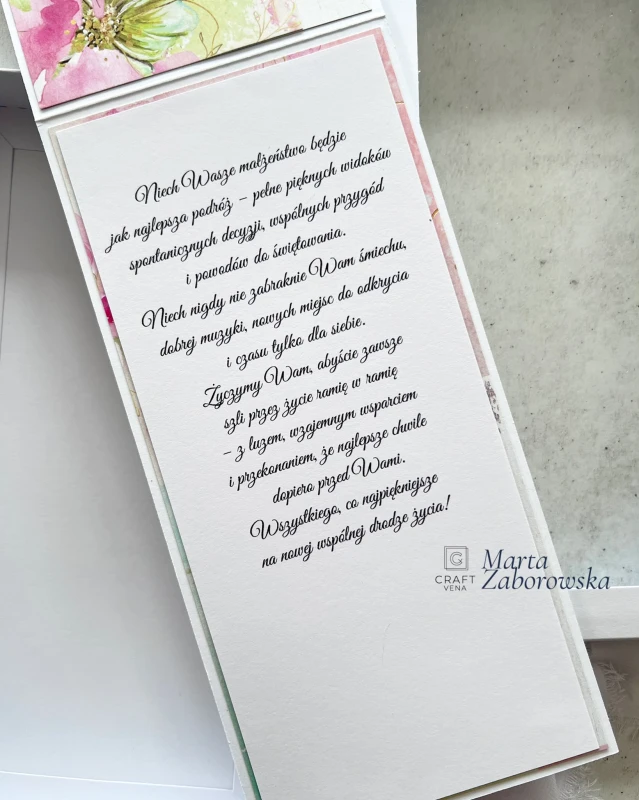 Niech Wasze małżeństwo będzie
jak najlepsza podróż – pełne pięknych widoków
spontanicznych decyzji, wspólnych przygód
i powodów do świętowania.
Niech nigdy nie zabraknie Wam śmiechu,
dobrej muzyki, nowych miejsc do odkrycia
i czasu tylko dla siebie.
Życzymy Wam, abyście zawsze
szli przez życie ramię w ramię
– z luzem, wzajemnym wsparciem
i przekonaniem, że najlepsze chwile
dopiero przed Wami.
Wszystkiego, co najpiękniejsze
na nowej wspólnej drodze życia!
CRAFT
VENA
Marta
Zaborowska